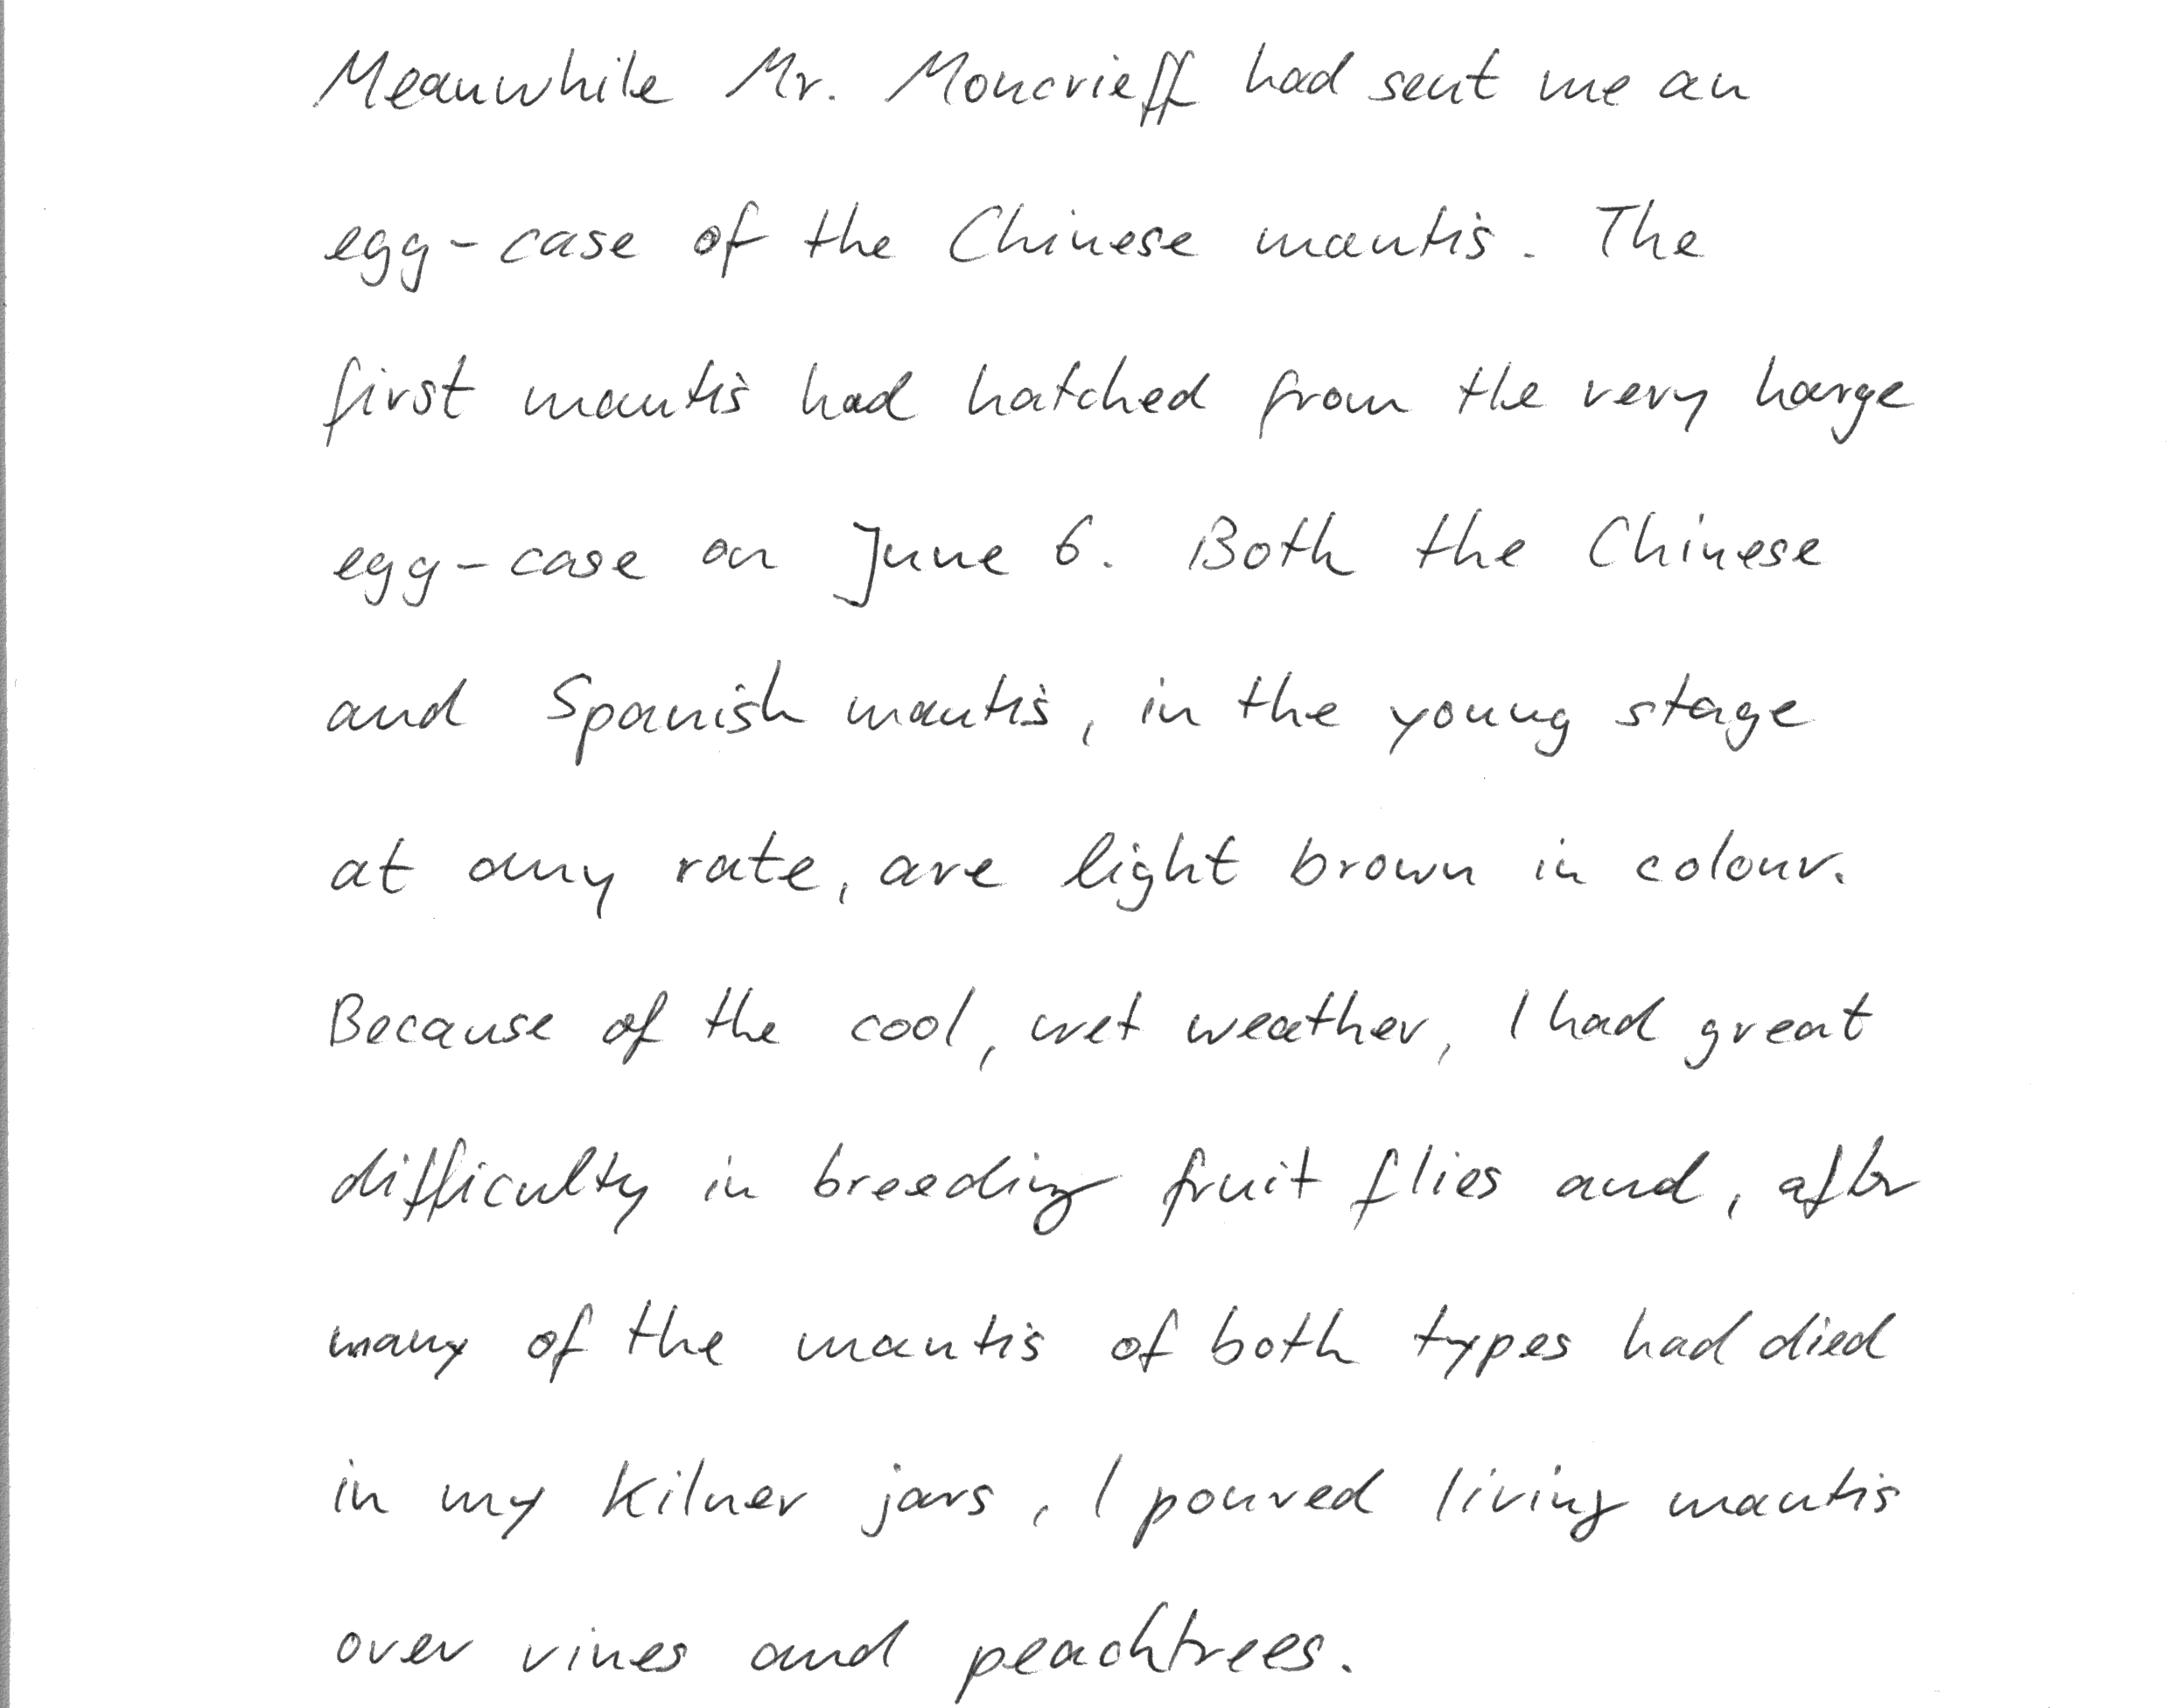 Meanwhile Mr. Moncrieff had sent me an
egg-case of the Chinese mantis. The
first mantis had hatched from the very harge
egg-case on June 6. Both the Chinese
and Spanish mantis, in the young stage
at any rate, are light brown in colour.
Because of the cool, wet weather, I had great
difficulty in breeding fruit flies and, after
many of the mantis of both types had died
in my Kilner jars, I poured living mantis
over vines and peachtrees.